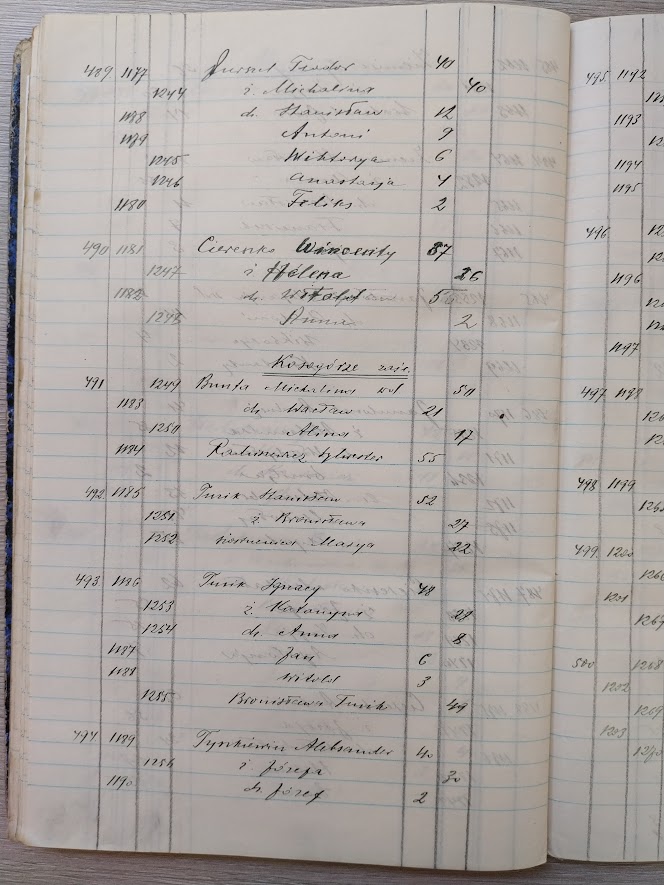 489 1177 Teodor 40
1244 ż. Michalina 40
1178 dz. Stanisław 12
1179 Antoni 9
1245 Wiktorya 6
1246 Anastazja 4
1180 Feliks 2
490 1181 Wincenty 37
1247 ż Helena 26
1182 dz. Witold 5
1248 Anna 2
zaśc.
491 1249 Bunta Michalina wd 50
1183 dz. Wacław 21
1250 Alina 17
1184 Sylwester 55
492 1185 Turik Stanisław 52
1251 ż. Bronisława 27
1252 Marya 22
493 1186 Turik Ignacy 48
1253 ż. Katarzyna 28
1254 dz. Anna 8
1187 Jan 6
1188 Witold 3
1255 Bronisława Turik 49
494 1189 Tyszkiewicz Aleksander 40
1256 ż. Józefa 30
1190 dz. Józef 2
495 1192
1193
1194
1195
496
1196
1197
497 1198
498 1199
499 1200
1201
500
1202
1203